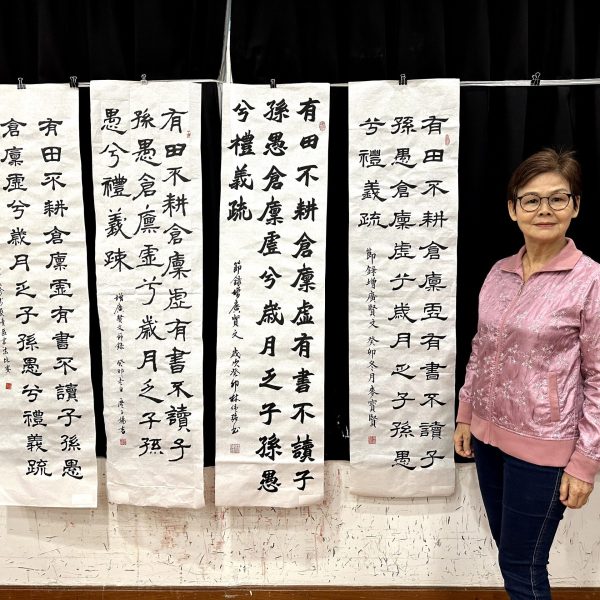 有田不耕倉廩虛有書不讀子
孫愚倉廩虛兮歲月乏子孫愚
兮禮義疏
節錄增廣賢文 癸卯冬月麥寶賢
有田不耕倉廩虛有書不讀子
孫愚倉廩虛兮歲月乏子孫愚
兮禮義疏
節錄增廣賢文 歲次癸卯林
有田不耕倉廩虛有書不讀子
孫愚倉廩虛兮歲月乏子孫
愚兮禮義疎
增廣賢文節錄 癸卯
有田不耕倉廩虛有書不讀子孫愚
倉廩虛兮歲月乏子孫愚兮禮義疏